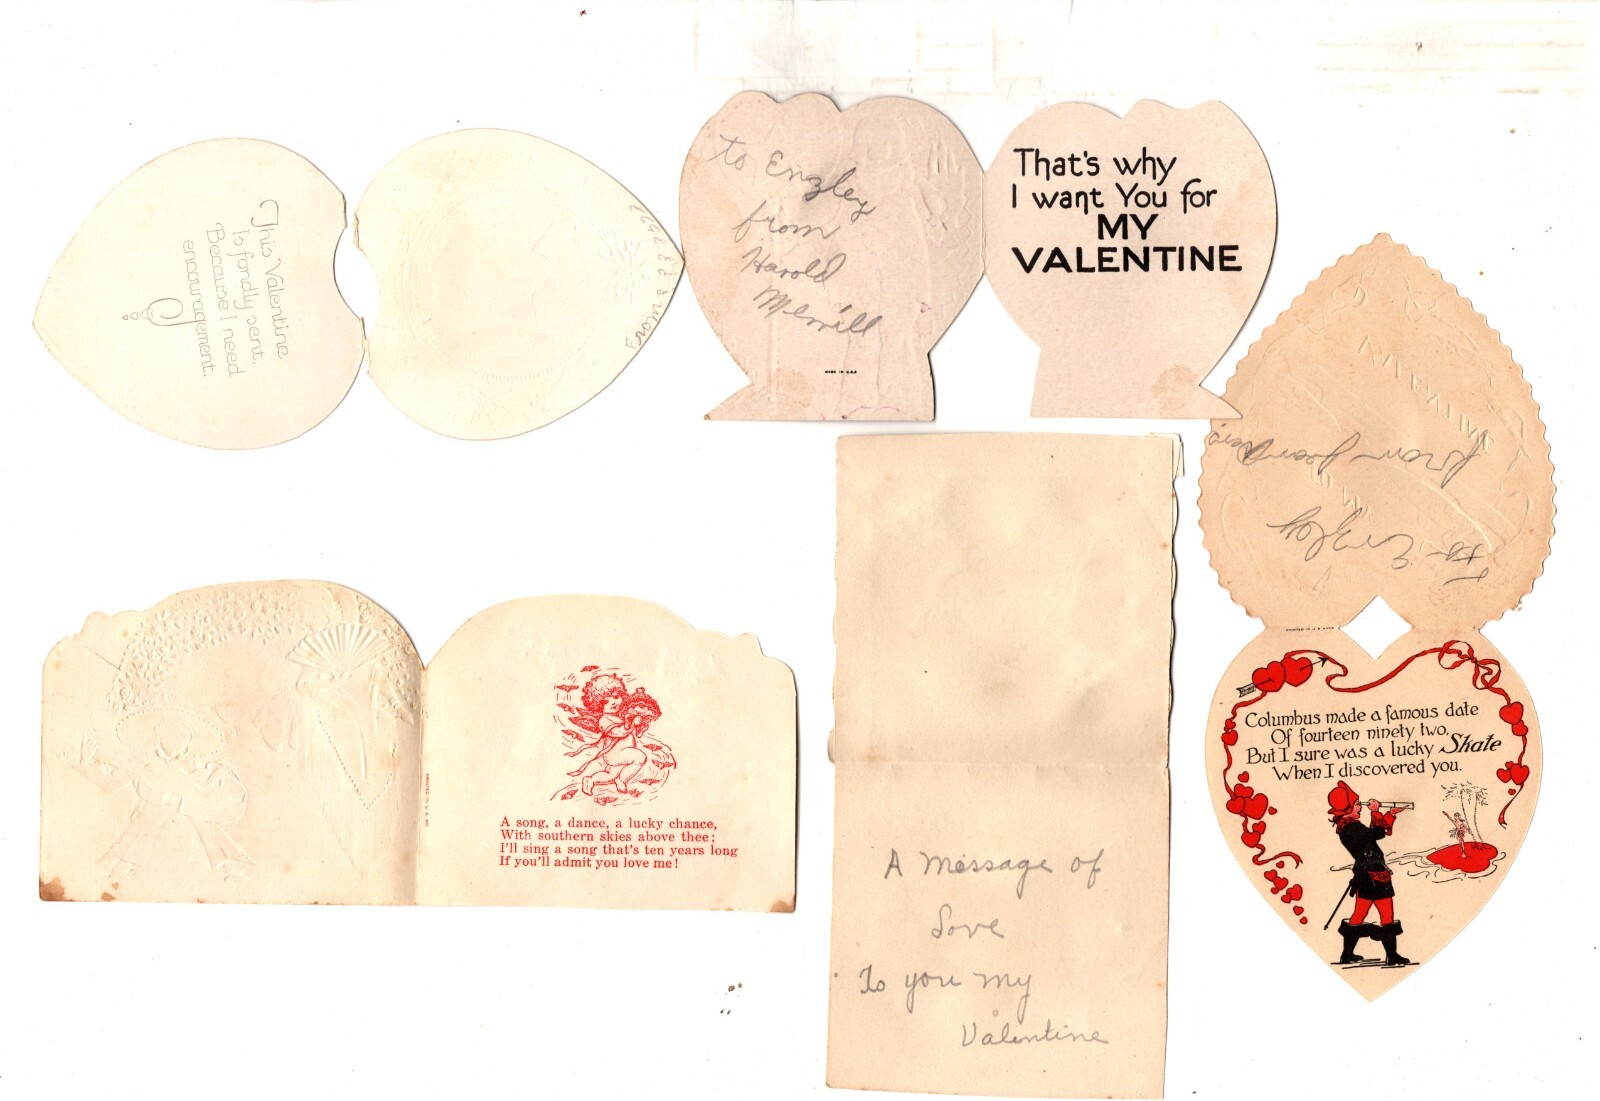 This Valentine
Is fondly sent,
Because I need
encouragement.
From ? ? ? ? ? ? ?
to Enzley
from
Harold
Merrill
MADE IN U.S.A
That's why
I want You for
MY
VALENTINE
To Enzley
from Jean
PRINTED IN U. S. A.
Columbus made a famous date
Of fourteen ninety two,
But I sure was a lucky Skate
When I discovered you.
PRINTED IN U. S. A.
A song, a dance, a lucky chance,
With southern skies above thee;
I'll sing a song that's ten years long
If you'll admit you love me!
A Message of
Love
To you my
Valentine